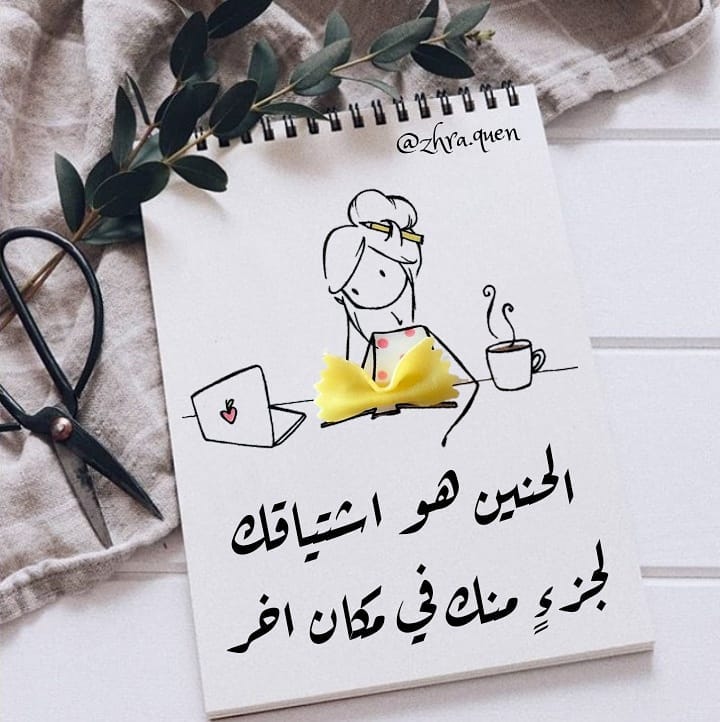 @zhra.quen
الحنين هو اشتياقك
لجزءٍ منك في مكان اخر